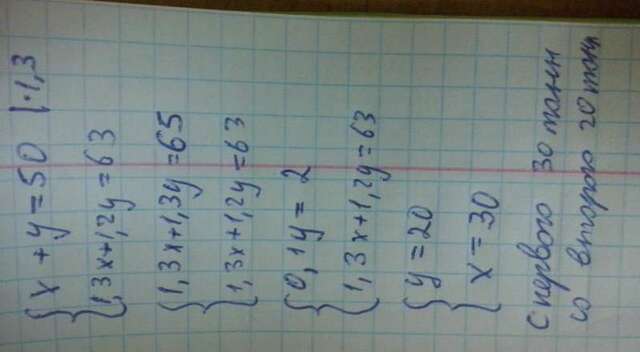 x + y = 50 | · 1,3
1,3x + 1,2y = 63
1,3x + 1,3y = 65
1,3x + 1,2y = 63
0,1y = 2
1,3x + 1,2y = 63
y = 20
x = 30
с первого 30 тонн
со второго 20 тонн